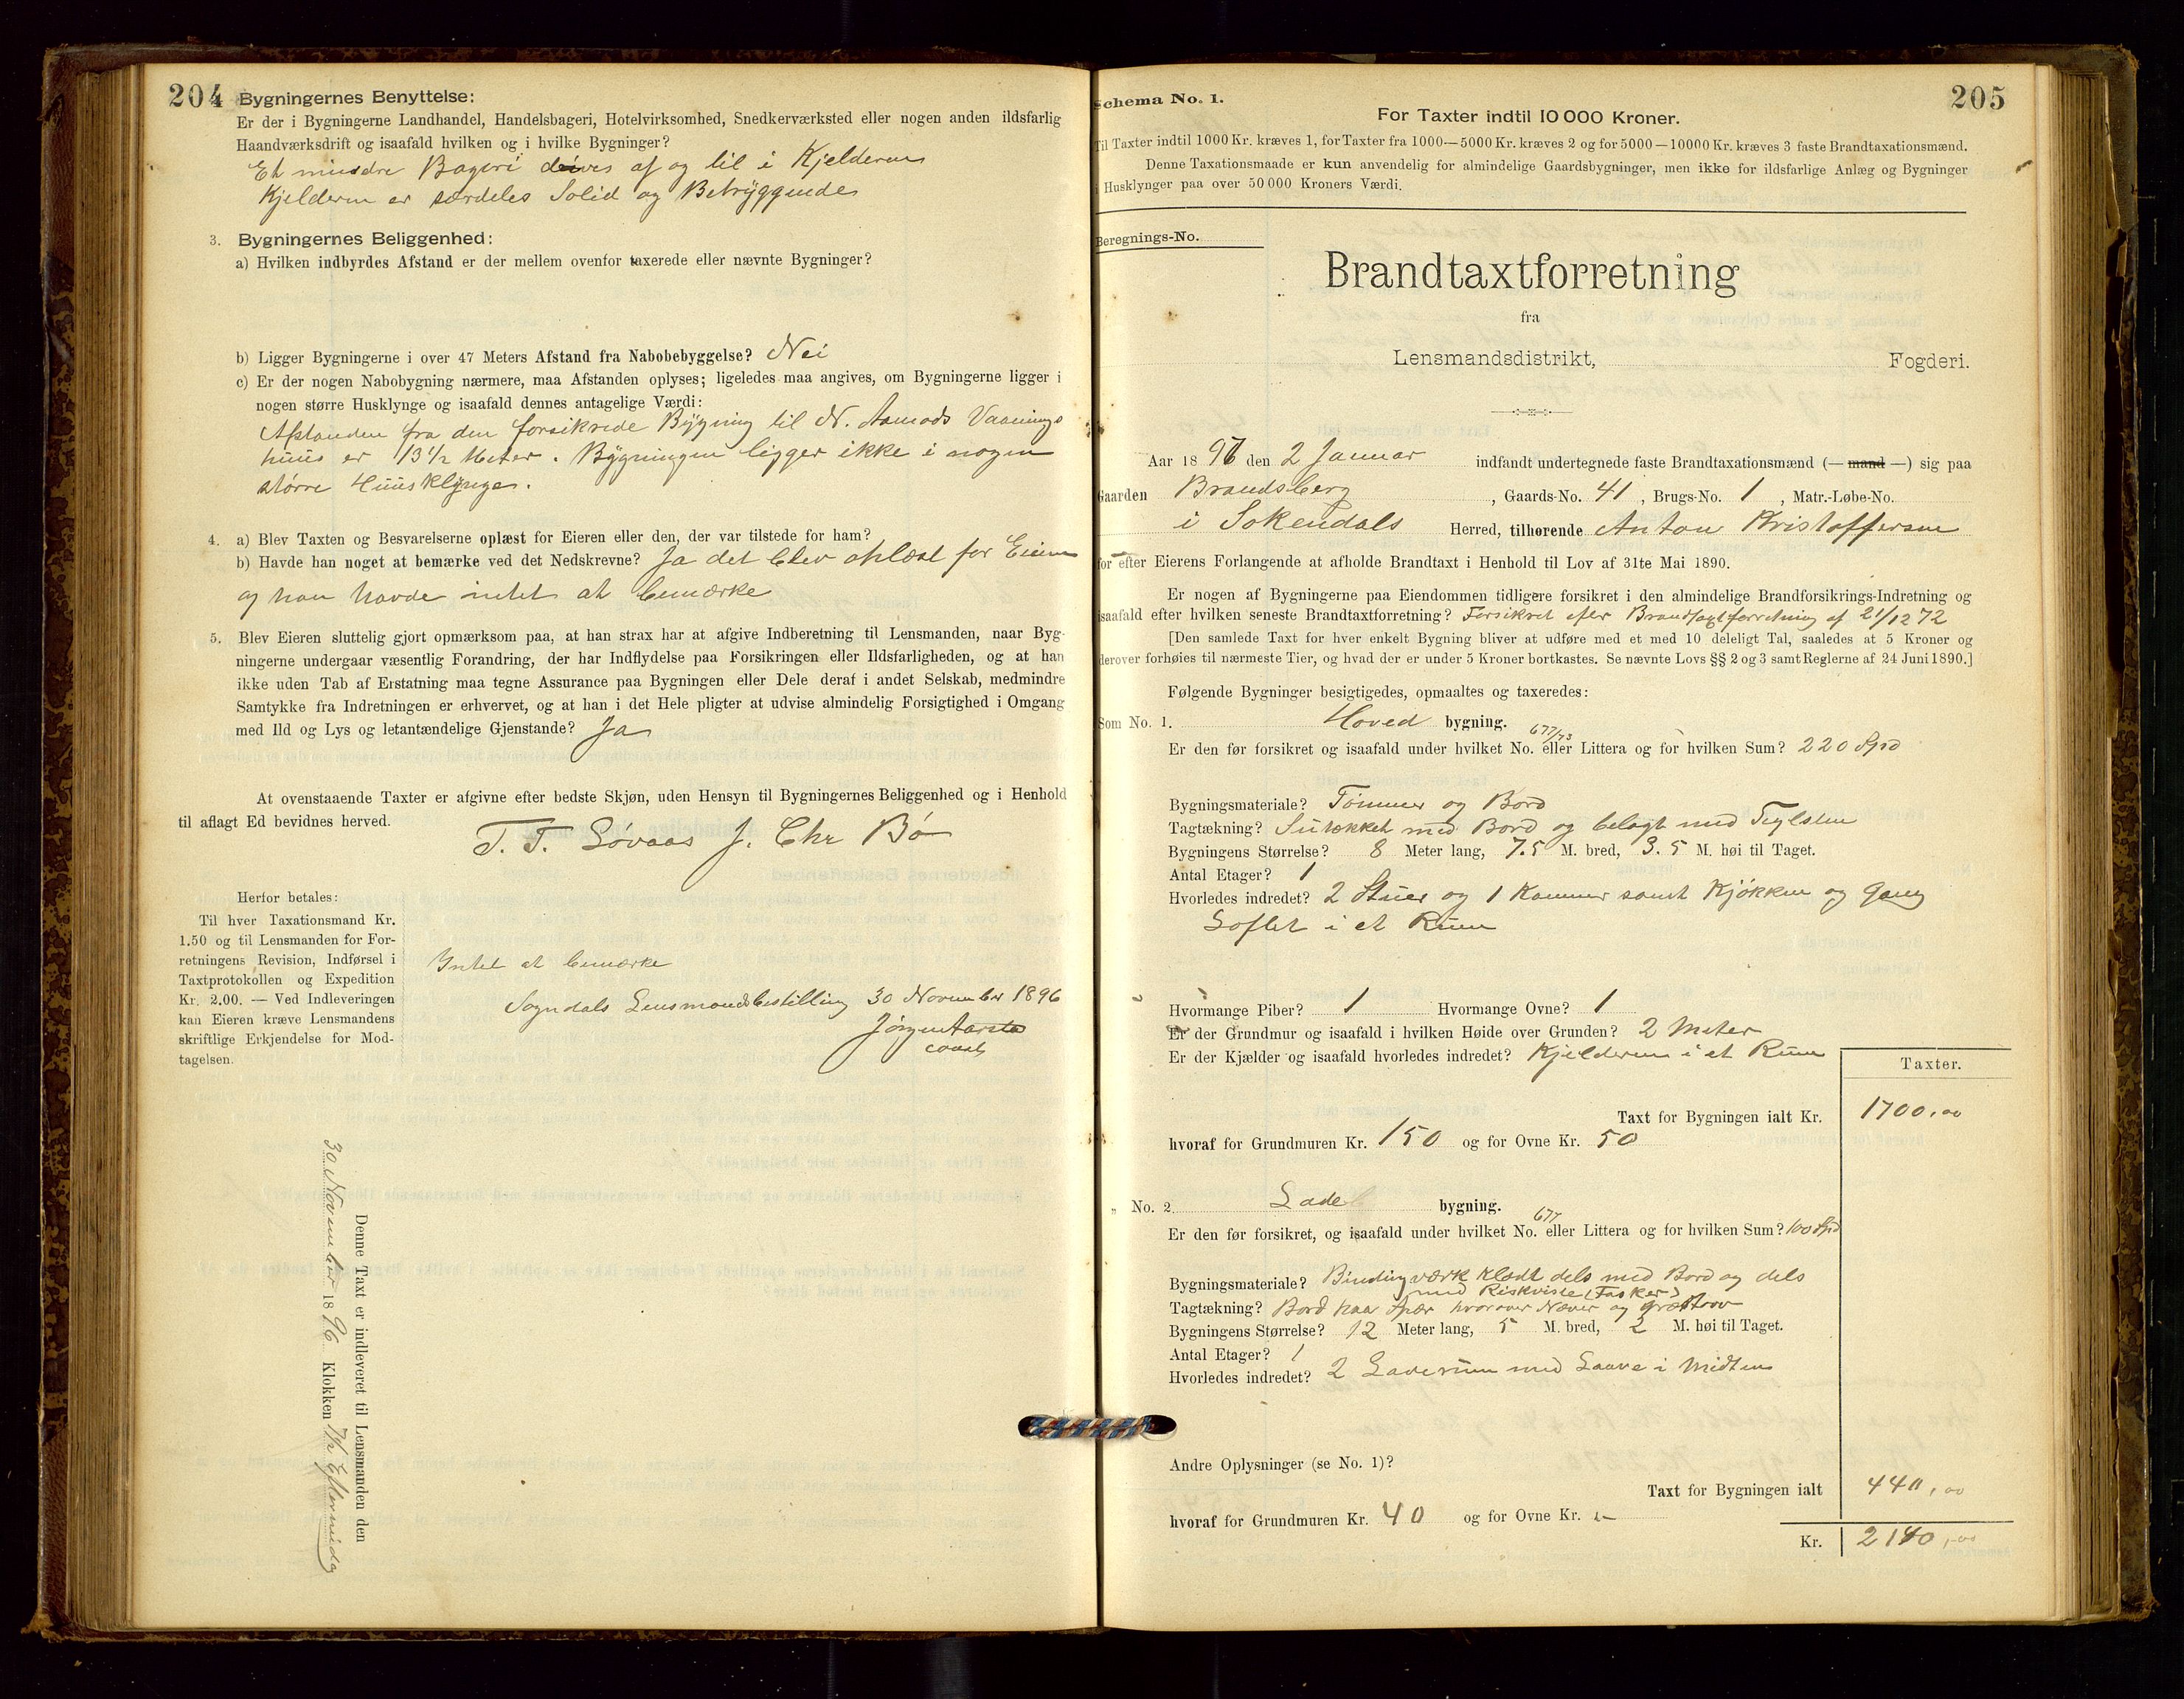 204 Bygningernes Benyttelse:
Er der i Bygningerne Landhandel, Handelsbageri, Hotelvirksomhed, Snedkerværksted eller nogen anden ildsfarlig
Haandværksdrift og isaafald hvilken og i hvilke Bygninger?
Et mindre Bageri drives af og til i Kjelderen
Kjelderen er særdeles Solid og Betryggende
3. Bygningernes Beliggenhed:
a) Hvilken indbyrdes Afstand er der mellem ovenfor taxerede eller nævnte Bygninger?
b) Ligger Bygningerne i over 47 Meters Afstand fra Nabobebyggelse? Nei
c) Er der nogen Nabobygning nærmere, maa Afstanden oplyses; ligeledes maa angives, om Bygningerne ligger i
nogen større Husklynge og isaafald dennes antagelige Værdi:
Afstanden fra den forsikrede Bygning til N. Aamods Vaanings
huus er 13 1/2 Meter. Bygningen ligger ikke i nogen
større Huusklynge.
4. a) Blev Taxten og Besvarelserne oplæst for Eieren eller den, der var tilstede for ham?
b) Havde han noget at bemærke ved det Nedskrevne? Ja det blev oplæst for Eieren
og han havde intet at bemærke
5. Blev Eieren sluttelig gjort opmærksom paa, at han strax har at afgive Indberetning til Lensmanden, naar Byg-
ningerne undergaar væsentlig Forandring, der har Indflydelse paa Forsikringen eller Ildsfarligheden, og at han
ikke uden Tab af Erstatning maa tegne Assurance paa Bygningen eller Dele deraf i andet Selskab, medmindre
Samtykke fra Indretningen er erhvervet, og at han i det Hele pligter at udvise almindelig Forsigtighed i Omgang
med Ild og Lys og letantændelige Gjenstande? Ja
At ovenstaaende Taxter er afgivne efter bedste Skjøn, uden Hensyn til Bygningernes Beliggenhed og i Henhold
til aflagt Ed bevidnes herved.
T. T. Løvaas J. Chr Bø
Herfor betales:
Til hver Taxationsmand Kr.
1.50 og til Lensmanden for For-
retningens Revision, Indførsel i
Taxtprotokollen og Expedition
Kr. 2.00. — Ved Indleveringen
kan Eieren kræve Lensmandens
skriftlige Erkjendelse for Mod-
tagelsen.
Intet at bemærke
Sogndals Lensmandsbestilling 30 November 1896
Jørgen Aarstad
Denne Taxt er indleveret til Lensmanden den
30 November 1896 Klokken 7 1/2 Eftermidg
Schema No. 1. 205
For Taxter indtil 10 000 Kroner.
Til Taxter indtil 1000 Kr. kræves 1, for Taxter fra 1000—5000 Kr. kræves 2 og for 5000—10000 Kr. kræves 3 faste Brandtaxationsmænd.
Denne Taxationsmaade er kun anvendelig for almindelige Gaardsbygninger, men ikke for ildsfarlige Anlæg og Bygninger
i Husklynger paa over 50 000 Kroners Værdi.
Beregnings-No.
Brandtaxtforretning
fra
Lensmandsdistrikt, Fogderi.
Aar 1896 den 2 Januar indfandt undertegnede faste Brandtaxationsmænd (— mand —) sig paa
Gaarden Brandsberg, Gaards-No. 41, Brugs-No. 1, Matr.-Løbe-No.
i Sokendals Herred, tilhørende Anton Kristoffersen
for efter Eierens Forlangende at afholde Brandtaxt i Henhold til Lov af 31te Mai 1890.
Er nogen af Bygningerne paa Eiendommen tidligere forsikret i den almindelige Brandforsikrings-Indretning og
isaafald efter hvilken seneste Brandtaxtforretning? Forsikret efter Brandtaxtforretning af 21/12 72
[Den samlede Taxt for hver enkelt Bygning bliver at udføre med et med 10 deleligt Tal, saaledes at 5 Kroner og
derover forhøies til nærmeste Tier, og hvad der er under 5 Kroner bortkastes. Se nævnte Lovs §§ 2 og 3 samt Reglerne af 24 Juni 1890.]
Følgende Bygninger besigtigedes, opmaaltes og taxeredes:
Som No. 1. Hoved bygning.
677/73
Er den før forsikret og isaafald under hvilket No. eller Littera og for hvilken Sum? 220 Spd
Bygningsmateriale? Tømmer og Bord
Tagtækning? Sutækket med Bord og belagt med Teglsten
Bygningens Størrelse? 8 Meter lang, 7.5 M. bred, 3.5 M. høi til Taget.
Antal Etager? 1
Hvorledes indredet? 2 Stuer og 1 Kammer samt Kjøkken og Gang
Loftet i et Rum
Hvormange Piber? 1 Hvormange Ovne? 1
Er der Grundmur og isaafald i hvilken Høide over Grunden? 2 Meter
Er der Kjælder og isaafald hvorledes indredet? Kjelderen i et Rum
Taxter.
Taxt for Bygningen ialt Kr. 1700,00
hvoraf for Grundmuren Kr. 150 og for Ovne Kr. 50
„ No. 2 Lade bygning.
677
Er den før forsikret, og isaafald under hvilket No. eller Littera og for hvilken Sum? 100 Spd
Bygningsmateriale? Bindingværk klædt dels med Bord og dels
med Riskviste (Fasker)
Tagtækning? Bord paa Spær hvorover Næver og græstorv
Bygningens Størrelse? 12 Meter lang, 5 M. bred, 2 M. høi til Taget.
Antal Etager? 1
Hvorledes indredet? 2 Laderum med Laave i Midten
Andre Oplysninger (se No. 1)?
Taxt for Bygningen ialt 440,00
hvoraf for Grundmuren Kr. 40 og for Ovne Kr. —
Kr. 2140,00